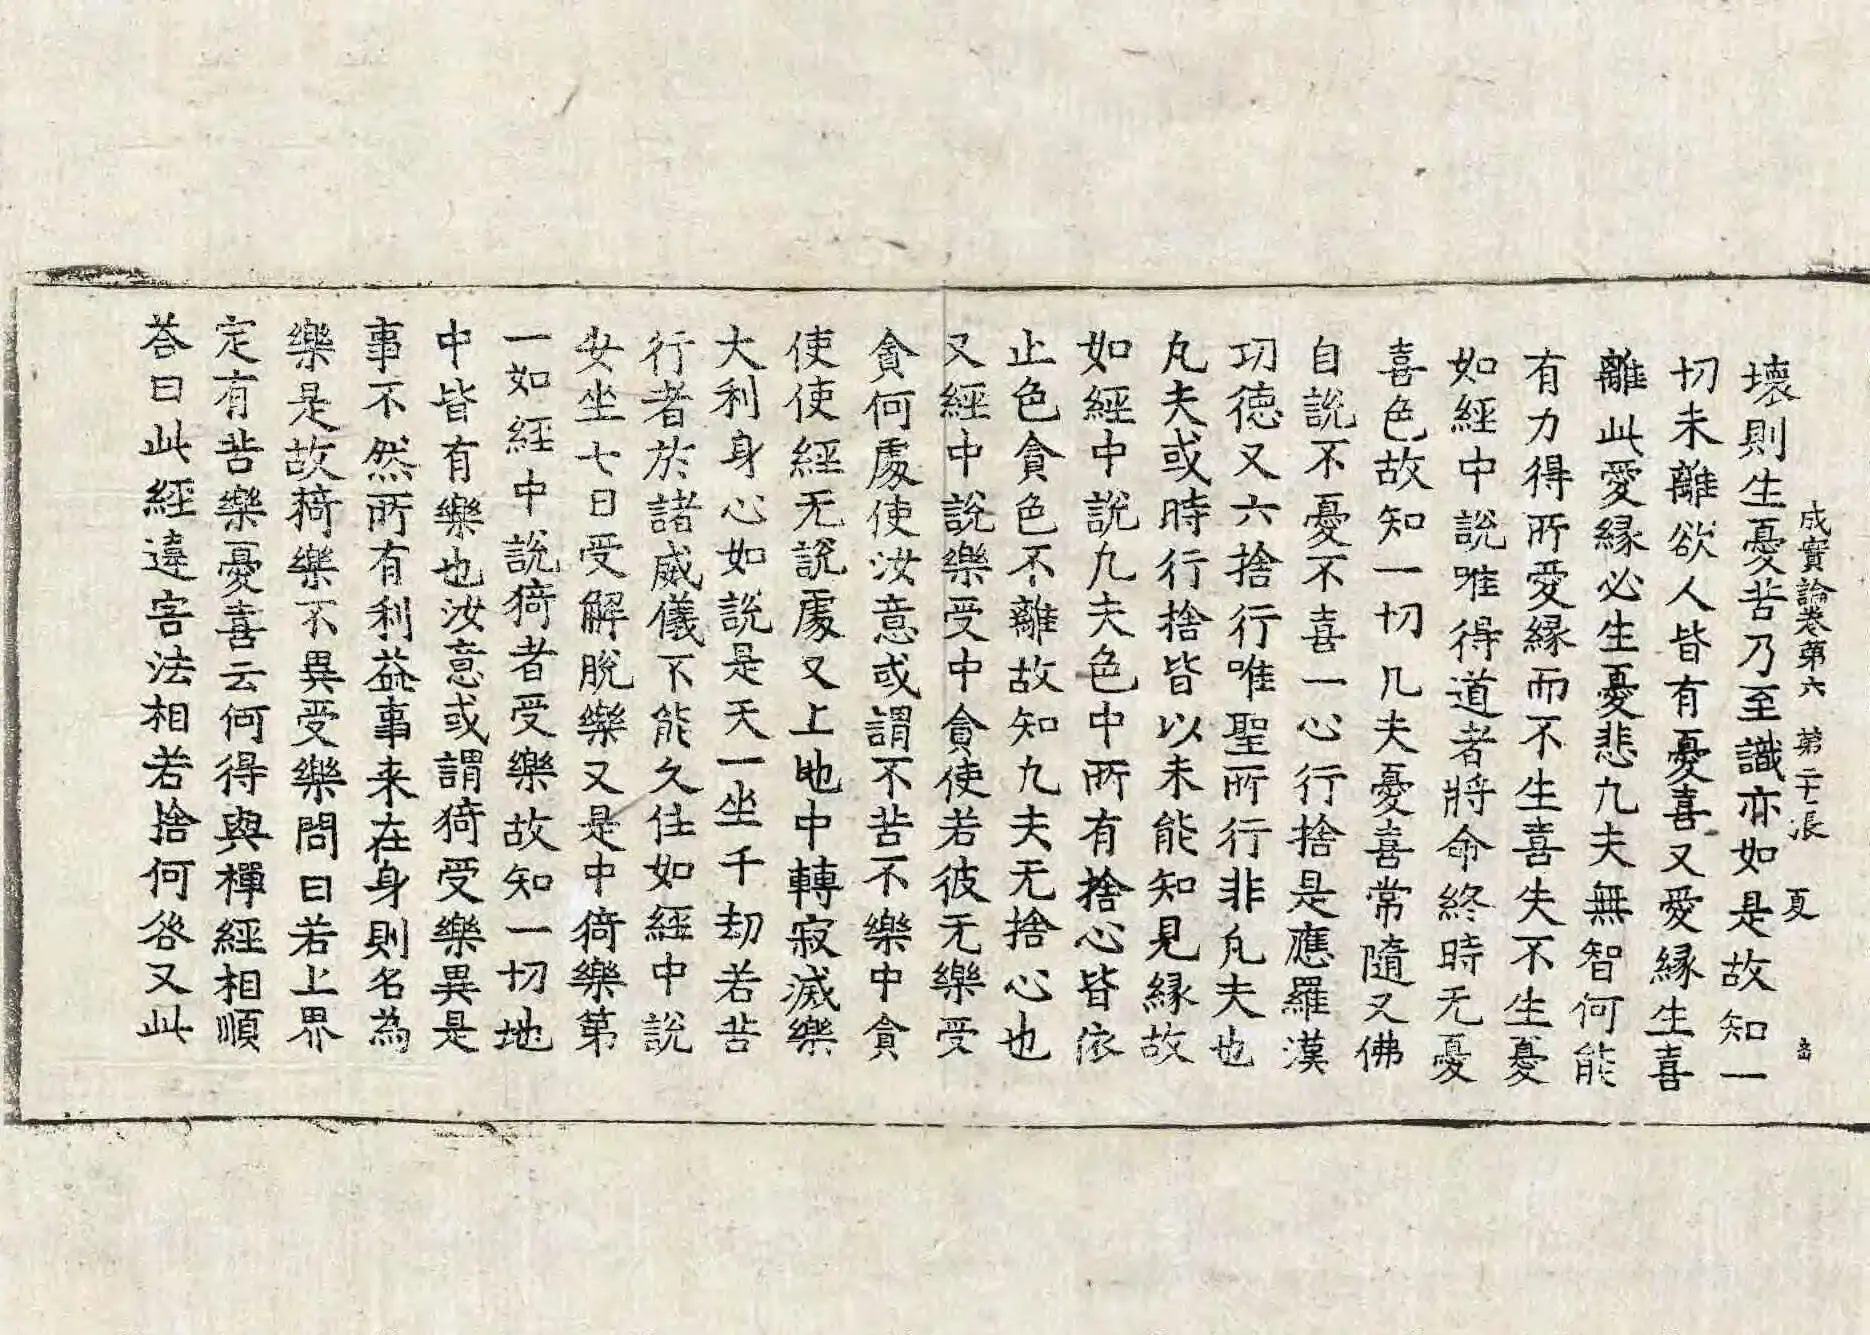 成實論卷第六 第二十張 夏
壞則生憂苦乃至識亦如是故知一
切未離欲人皆有憂喜又愛緣生喜
離此愛緣必生憂悲凡夫無智何能
有力得所愛緣而不生喜失不生憂
如經中說唯得道者將命終時无憂
喜色故知一切凡夫憂喜常隨又佛
自說不憂不喜一心行捨是應羅漢
功德又六捨行唯聖所行非凡夫也
凡夫或時行捨皆以未能知見緣故
如經中說凡夫色中所有捨心皆依
止色貪色不離故知凡夫无捨心也
又經中說樂受中貪使若彼无樂受
貪何處使汝意或謂不苦不樂中貪
使使經无說處又上地中轉寂滅樂
大利身心如說是天一坐千劫若苦
行者於諸威儀不能久住如經中說
女坐七日受解脫樂又是中猗樂第
一如經中說猗者受樂故知一切地
中皆有樂也汝意或謂猗受樂異是
事不然所有利益事来在身則名為
樂是故猗樂不異受樂問曰若上界
定有苦樂憂喜云何得與禪經相順
荅曰此經違害法相若捨何咎又此